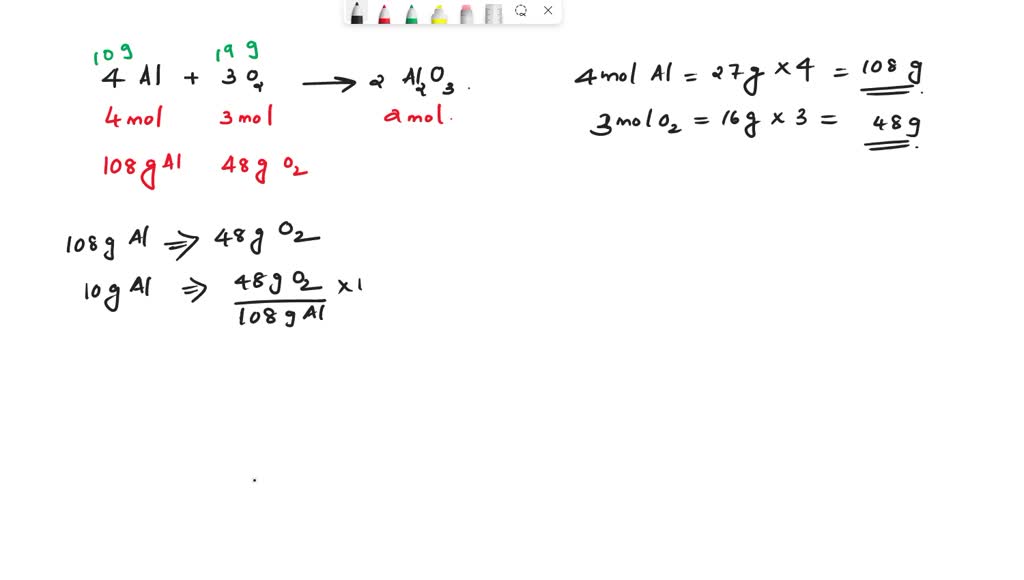 10g 19 g
4 Al + 3 O₂ → 2 Al₂O₃.
4 mol 3 mol 2 mol.
108g Al 48g O₂
108g Al ⇒ 48g O₂
10g Al ⇒ 48g O₂ / 108g Al × 1
4 mol Al = 27g × 4 = 108 g.
3 mol O₂ = 16g × 3 = 48g.